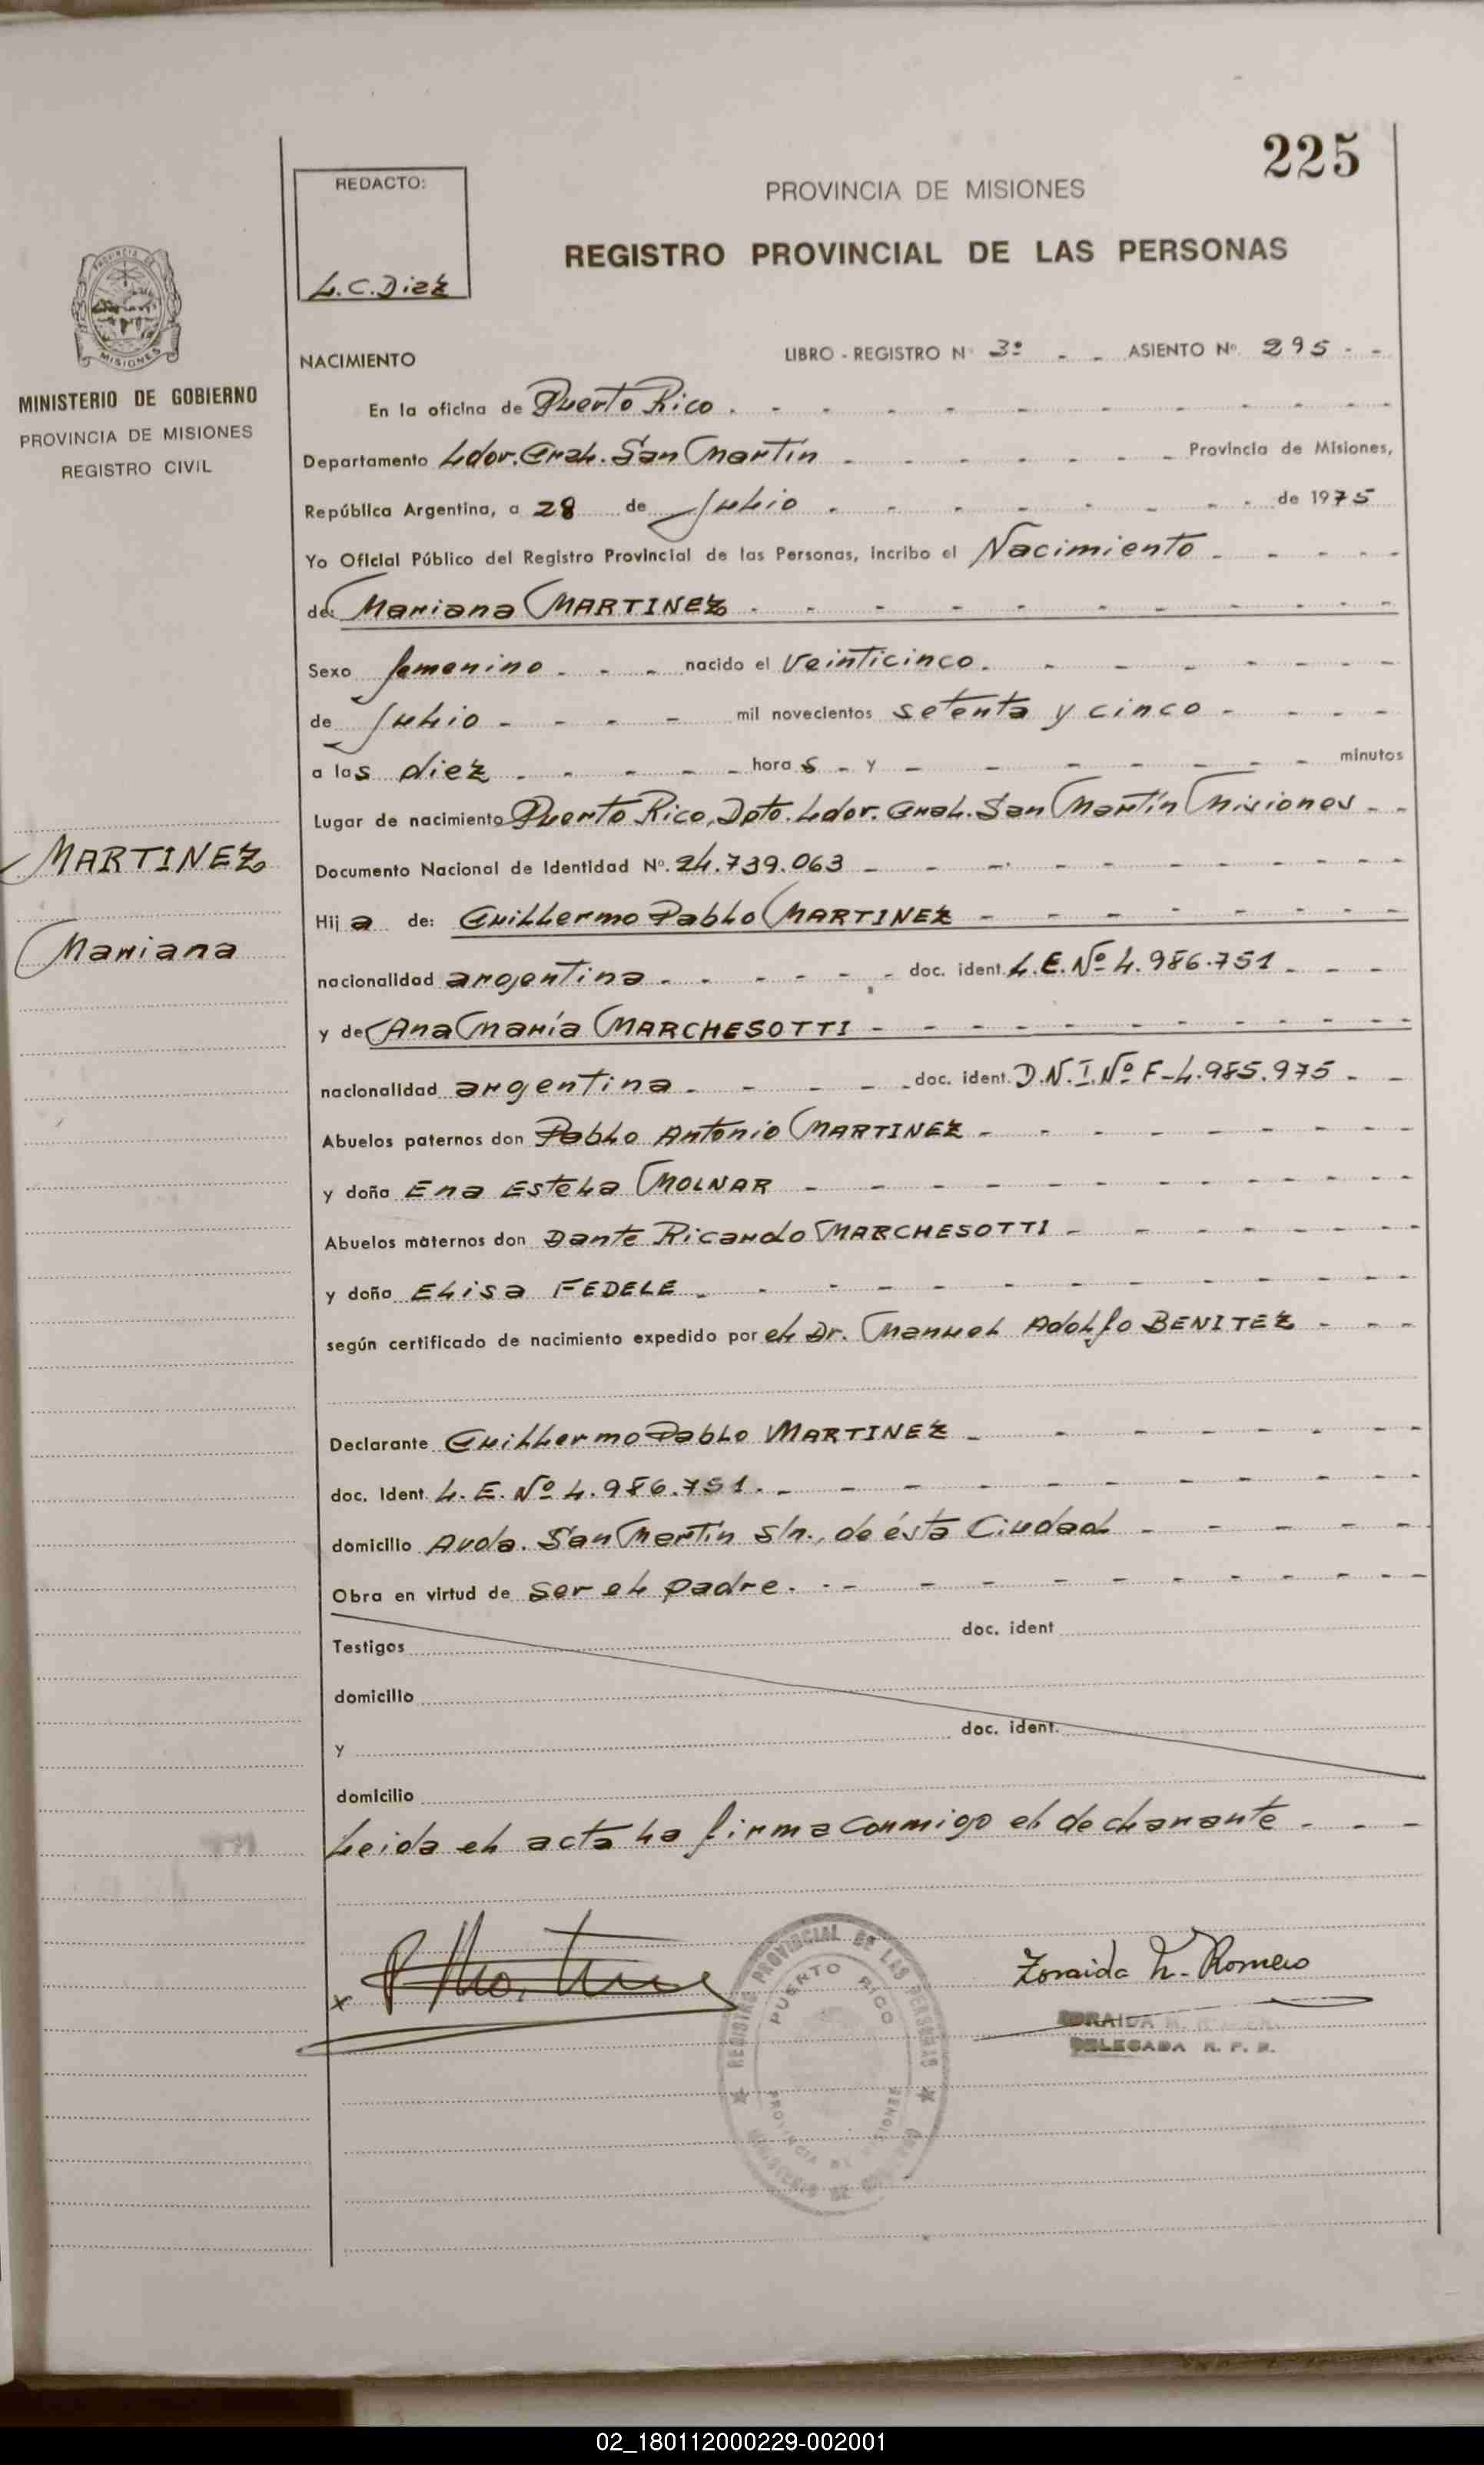 225
REDACTO:
L.C.Diez
PROVINCIA DE MISIONES
REGISTRO PROVINCIAL DE LAS PERSONAS
MISIONES
MINISTERIO DE GOBIERNO
PROVINCIA DE MISIONES
REGISTRO CIVIL
MARTINEZ
Mariana
NACIMIENTO
LIBRO - REGISTRO Nº 3º - - ASIENTO Nº. 295 - -
En la oficina de Puerto Rico
Departamento Ldor. Gral. San Martín Provincia de Misiones,
República Argentina, a 28 de Julio de 1975
Yo Oficial Público del Registro Provincial de las Personas, incribo el Nacimiento
de: Mariana MARTINEZ
Sexo femenino nacido el veinticinco
de Julio mil novecientos setenta y cinco
a las diez horas - y - minutos
Lugar de nacimiento Puerto Rico, Dpto. Ldor. Gral. San Martín Misiones
Documento Nacional de Identidad Nº. 24.739.063
Hija de: Guillermo Pablo MARTINEZ
nacionalidad argentina doc. ident. L.E. Nº 4.986.751
y de Ana María MARCHESOTTI
nacionalidad argentina doc. ident. D.N.I. Nº F-4.985.975
Abuelos paternos don Pablo Antonio MARTINEZ
y doña Ena Estela MOLNAR
Abuelos maternos don Dante Ricardo MARCHESOTTI
y doña Elisa FEDELE
según certificado de nacimiento expedido por el Dr. Manuel Adolfo BENITEZ
Declarante Guillermo Pablo MARTINEZ
doc. Ident. L.E. Nº 4.986.751.
domicilio Avda. San Martín s/n., de ésta Ciudad
Obra en virtud de ser el padre.
Testigos doc. ident
domicilio
y doc. ident.
domicilio
Leida el acta la firma conmigo el declarante
x
REGISTRO PROVINCIAL DE LAS PERSONAS
PUERTO RICO
PROVINCIA DE MISIONES
Zoraida M. Romero
ZORAIDA M.
DELEGADA R. P. P.
02_180112000229-002001